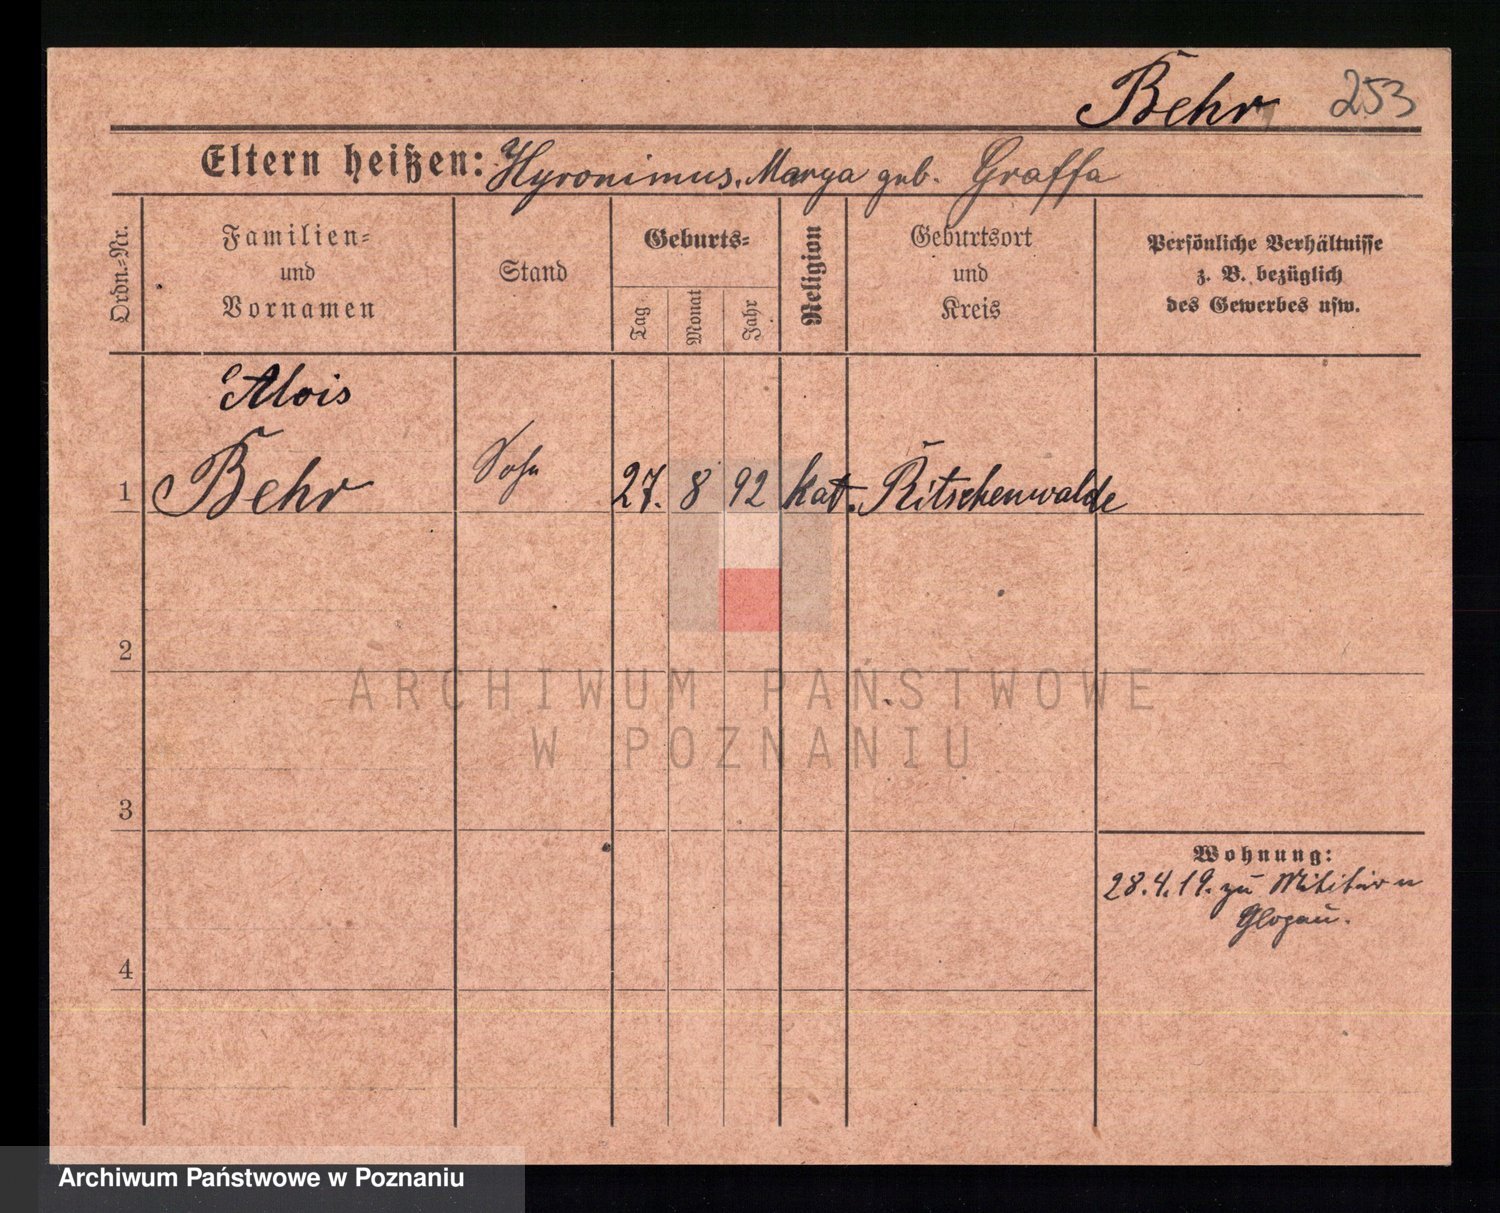 Behr 253
Eltern heißen: Hyronimus, Marya geb. Graffa
Ordn.-Nr.
Familien-
und
Vornamen
Stand
Geburts-
Tag
Monat
Jahr
Religion
Geburtsort
und
Kreis
Persönliche Verhältnisse
z. B. bezüglich
des Gewerbes usw.
Alois
1 Behr Sohn 27. 8 92 kat. Ritschenwalde
2
3
4
Wohnung:
28.4.19. zu Militär n
Glogau.
ARCHIWUM PAŃSTWOWE
W POZNANIU
Archiwum Państwowe w Poznaniu